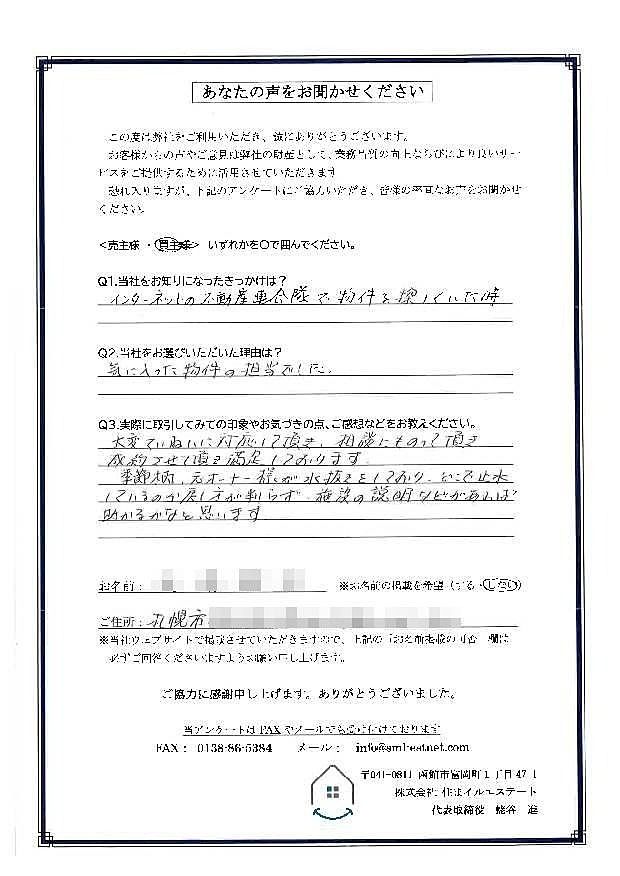 あなたの声をお聞かせください
この度は弊社をご利用いただき、誠にありがとうございます。
お客様からの声やご意見は弊社の財産として、業務品質の向上ならびにより良いサー
ビスをご提供するために活用させていただきます
恐れ入りますが、下記のアンケートにご協力いただき、皆様の率直なお声をお聞かせ
ください。
<売主様 ・ 買主様> いずれかを○で囲んでください。
Q1.当社をお知りになったきっかけは？
インターネットの不動産連合隊で物件を探していた時
Q2.当社をお選びいただいた理由は？
気に入った物件の担当でした。
Q3.実際に取引してみての印象やお気づきの点、ご感想などをお教えください。
大変ていねいに対応して頂き、相談にものって頂き
成約させて頂き満足しております。
季節柄、元オーナー様が水抜きをしており、どこで止水
しているのか戻し方が判らず、施設の説明などがあれば
助かるかなと思います
お名前：
※お名前の掲載を希望（する・しない）
ご住所：札幌市
※当社ウェブサイトで掲載させていただきますので、上記の「お名前掲載の可否」欄は
必ずご回答くださいますようお願い申し上げます。
ご協力に感謝申し上げます。ありがとうございました。
当アンケートはFAXやメールでも受け付けております
FAX： 0138-86-5384 メール： info@smileatnet.com
〒041-0811 函館市富岡町1丁目47-1
株式会社 住まイルエステート
代表取締役